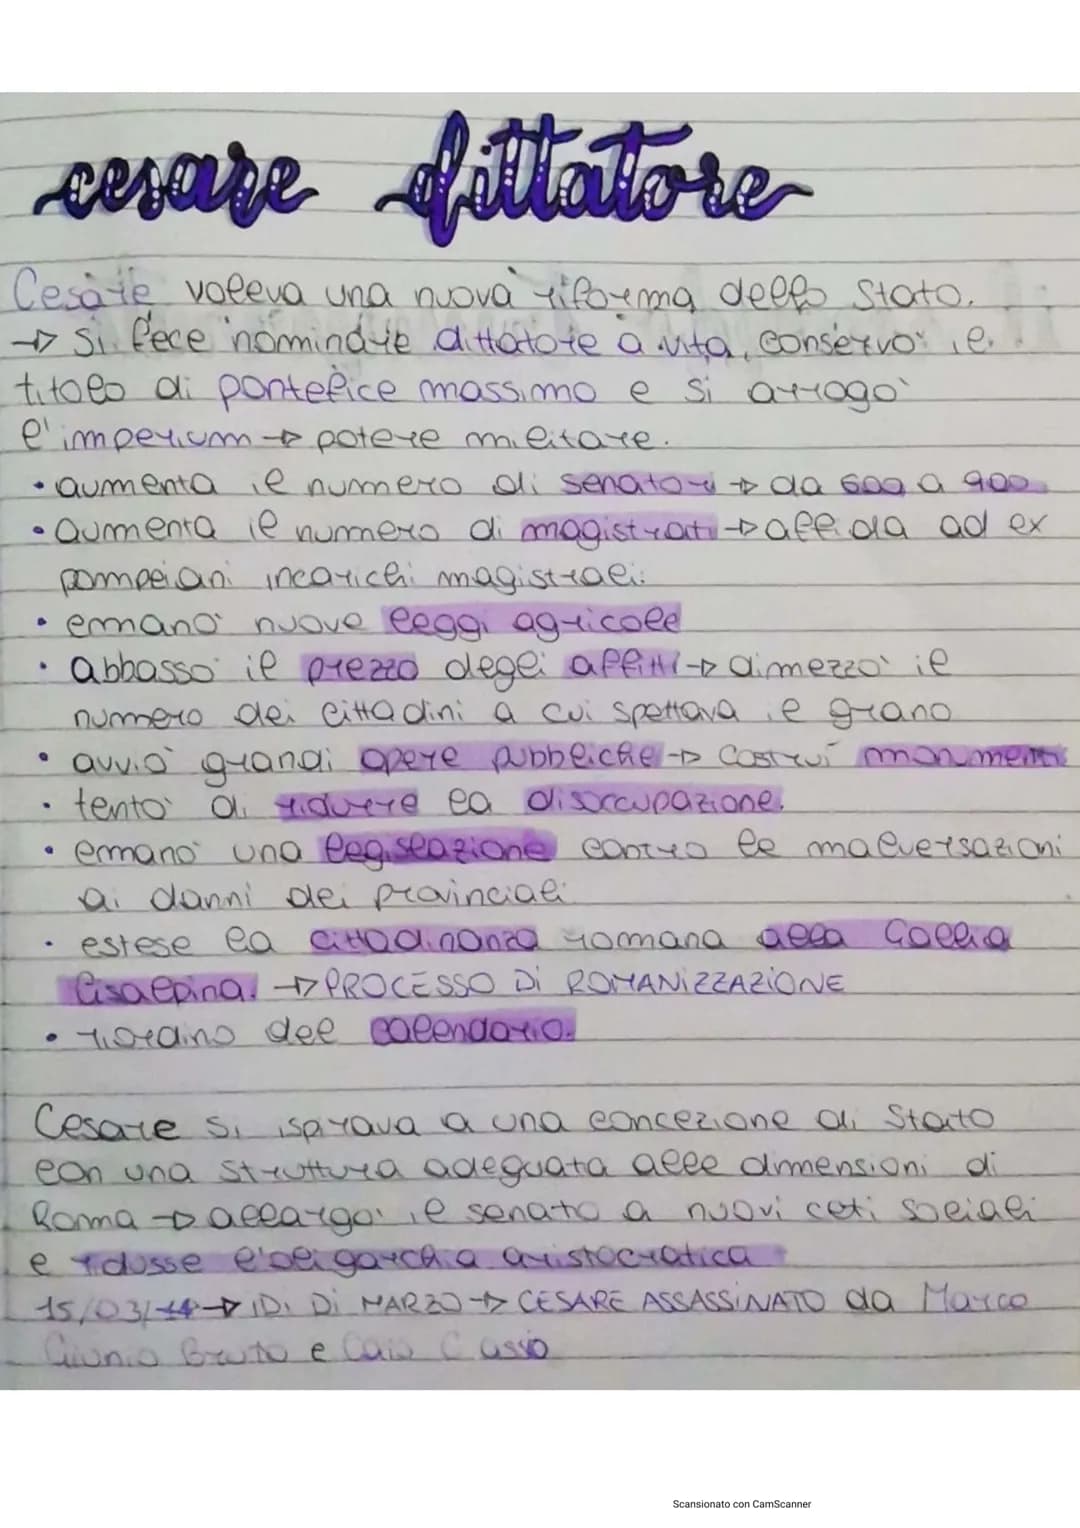 cesare dittatore
Cesare voleva una nuova riforma dello Stato.
→ Si fece nominare dittatore a vita, conservò il
titolo di pontefice massimo e si arrogò
l'imperium → potere militare.
• aumenta il numero di senatori → da 600 a 900
• aumenta il numero di magistrati → affida ad ex
pompeiani incarichi magistrali.
• emanò nuove leggi agricole
• abbassò il prezzo degli affitti → dimezzò il
numero dei cittadini a cui spettava il grano
• avviò grandi opere pubbliche → costruì monumenti
• tentò di ridurre la disoccupazione.
• emanò una legislazione contro le malversazioni
ai danni dei provinciali.
• estese la cittadinanza romana alla Gallia
Cisalpina. → PROCESSO Di ROMANiZZAZiONE
• riordino del calendario.
Cesare si ispirava a una concezione di Stato
con una struttura adeguata alle dimensioni di
Roma → allargò il senato a nuovi ceti sociali
e ridusse l'oligarchia aristocratica
15/03/44 → iDi Di MARZO → CESARE ASSASSiNATO da Marco
Giunio Bruto e Caio Cassio
Scansionato con CamScanner